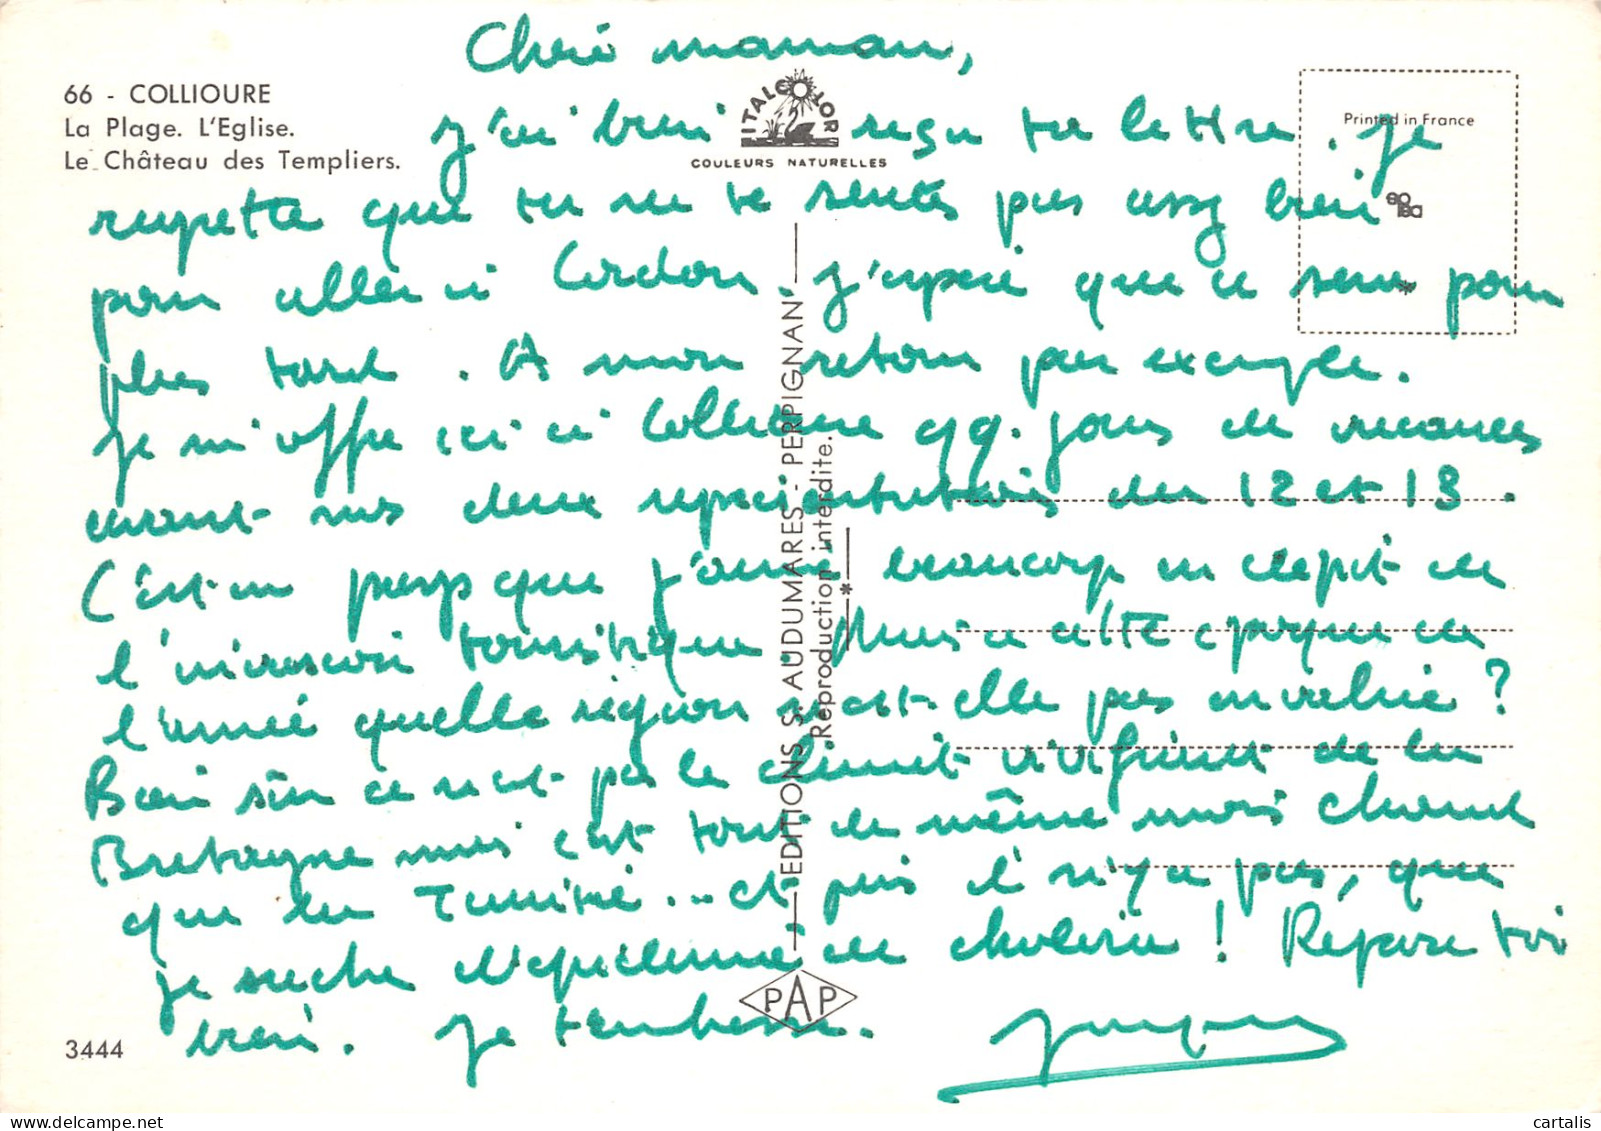 66 - COLLIOURE
La Plage. L'Eglise.
Le Château des Templiers.
ITALCOLOR
COULEURS NATURELLES
Printed in France
Chère maman,
j'ai bien reçu ta lettre. Je
regrette que tu ne te sentes pas assez bien
pour aller à Cordon. J'espère que ce sera pour
plus tard. A mon retour par exemple.
Je m'offre ici à Collioure qq. jours de vacances
avant nos deux représentations des 12 et 13.
C'est un pays que j'aime beaucoup en dépit de
l'invasion touristique. Mais à cette époque de
l'année quelle région n'est-elle pas envahie ?
Bien sûr ce n'est pas le climat vivifiant de la
Bretagne mais c'est tout de même moins chaud
que la Tunisie... et puis il n'y a pas, que
je sache d'épidémie de choléra ! Repose toi
bien. Je t'embrasse.
Jacques
EDITIONS S. AUDUMARES - PERPIGNAN
Reproduction interdite.
PAP
3444
cartalis
www.delcampe.net